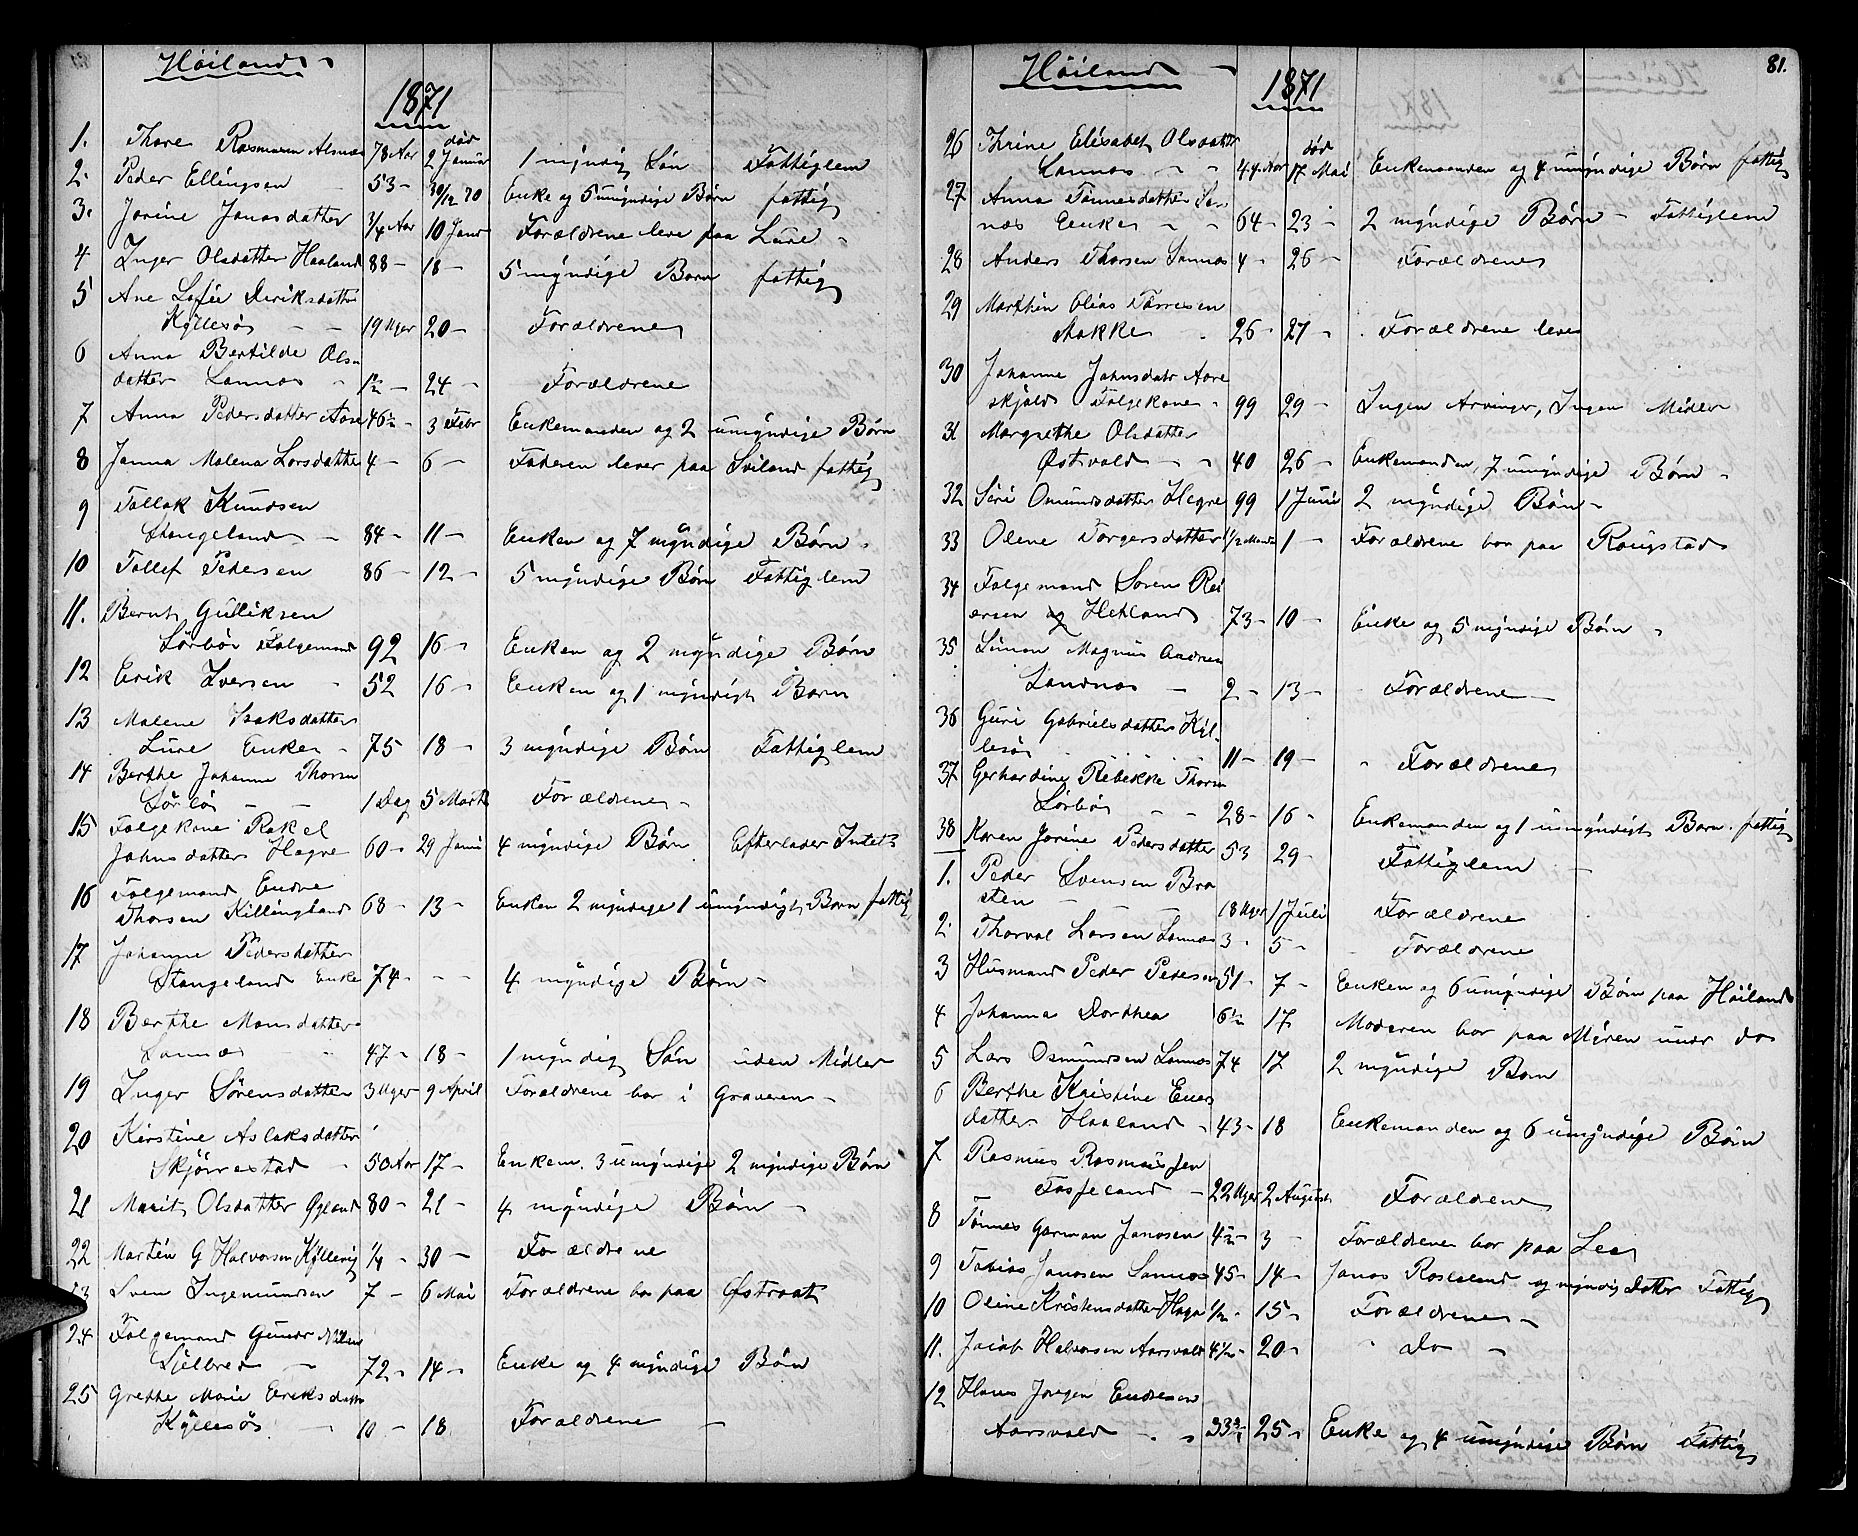 Höiland
1871
død
1. Thore Rasmussen Alsnæs 78 Aar 2 Januar 1 myndig Søn Fattiglem
2. Peder Ellingsen 53 - 30/12 70 Enke og 5 umyndige Børn fattig
3. Jorine Jonasdatter 3/4 Aar 10 Janr Forældrene leve paa Lure -
4 Inger Olsdatter Haaland 88 - 18 - 5 myndige Børn fattig
5 Ane Sofie Eriksdatter
Kyllesø - - 19 Uger 20 - Forældrene
6 Anna Bertilde Ols-
datter Sannæs - 1 1/2 - 24 - Forældrene
7 Anna Pedersdatter Aase 46 1/2 - 3 Febr Enkemanden og 2 umyndige Børn
8 Janna Malena Larsdatter 4 - 6 - Faderen lever paa Sviland fattig
9 Tollak Knudsen
Stangeland - 84 - 11 - Enken og 7 myndige Børn -
10 Tollef Pedersen 86 - 12 - 5 myndige Børn Fattiglem
11. Bernt Gulliksen
Sørbø Folgemand 92 16 - Enken og 2 myndige Børn
12 Erik Iversen - 52 16 - Enken og 1 myndigt Barn
13 Malene Isaksdatter
Lure Enke - 75 18 - 3 myndige Børn Fattiglem
14 Berthe Johanne Thorsen
Sørbø - - 1 Dag 5 Marts Forældrene -
15 Folgekone Rakel
Johnsdatter Hogre 60 - 29 Janr 4 myndige Børn Efterlader Intet
16 Folgemand Endre
Thorsen Killingland 68 - 13 - Enken 2 myndige 1 umyndigt Barn fattig
17 Johanne Pedersdatter
Stangeland Enke 74 - - - 4 myndige Børn -
18 Berthe Monsdatter
Sannæs 47 - 18 - 1 myndig Søn uden Midler
19 Inger Sørensdatter 3 Uger 9 April Forældrene bor i Graveren -
20 Kirstine Aslaksdatter
Skjørrestad - 50 Aar 17 - Enkem. 3 umyndige 2 myndige Børn
21 Marit Olsdatter Øgland 80 - 21 - 4 myndige Børn -
22 Martin G Halvorsen Kyllevig 1/4 - 30 - Forældrene
23 Sven Ingemundsen 7 - 6 Mai Forældrene bo paa Østraat
24 Folgemand Gunar Nilsen
- 72 - 14 - Enke og 4 myndige Børn
25 Grethe Marie Eriksdatter
Kyllesø - 10 - 18 Forældrene -
Höiland -
1871
81.
død
26 Thrine Elisabet Olsdatter
Sannæs - - 44 Aar 17 Mai Enkemanden og 4 umyndige Børn fattig
27 Anna Tønnesdatter San-
næs Enke - - 64 - 23 - 2 myndige Børn - Fattiglem
28 Anders Thorsen Sannæs 4 - 26 - Forældrene
29 Marthin Olias Tørresen
Stokke - 26 - 27 - Forældrene leve
30 Johanne Johnsdatr Aare
skjold Folgekone - 99 29 - Ingen Arvinger, Ingen Midler
31 Margrethe Olsdatter
Østvold - - 40 26 - Enkemanden, 7 umyndige Børn -
32 Siri Omundsdatter Hogre 99 1 Juni 2 myndige Børn -
33 Olene Torgersdatter 1/2 Maaned 1 - Forældrene bor paa Rougstad
34 Folgemand Soren Rei
ersen og Hetland 73 - 10 - Enke og 5 myndige Børn -
35 Simon Magnus Andreas
Sandnæs - 2 - 13 - Forældrene -
36 Guri Gabrielsdatter Kyl-
lesø - 11 - 19 - Forældrene
37 Gerhardine Rebekke Thorsen
Sørbø - - 28 - 16 - Enkemanden og 1 umyndigt Barn. fattig
38 Karen Jorine Pedersdatter 53 29 - Fattiglem -
1. Peder Svensen Bra
sten - 18 Uger 1 Juli Forældrene
2. Thorval Larsen Sannæs 3 - 5 - Forældrene
3 Husmand Peder Pedersen 51 - 7 - Enken og 6 umyndige Børn paa Höiland
4 Johanna Dorthea 6 1/2 17 Moderen bor paa Myren unðr do
5 Lars Osmundsen Sannæs 74 17 2 myndige Børn
6 Berthe Kristine Eners
datter Haaland - 43 - 18 Enkemanden og 6 umyndige Børn
7 Rasmus Rasmussen
Fosseland - 22 Uger 2 August Forældrene
8 Tønnes Garman Janosen 4 1/2 - 3 - Forældrene bor paa Lea
9 Tobias Janosen Sannæs 45 - 14 - Jonas Rosseland og myndig Datter Fattig
10 Oline Kristensdatter Hogre 1/2 - 15 - Forældrene -
11. Jacob Halvorsen Aarsvold 4 1/2 - 20 - " Do -
12 Hans Jørgen Endresen
Aarsvold - - 33 3/4 25 - Enke og 4 umyndige Børn Fattig